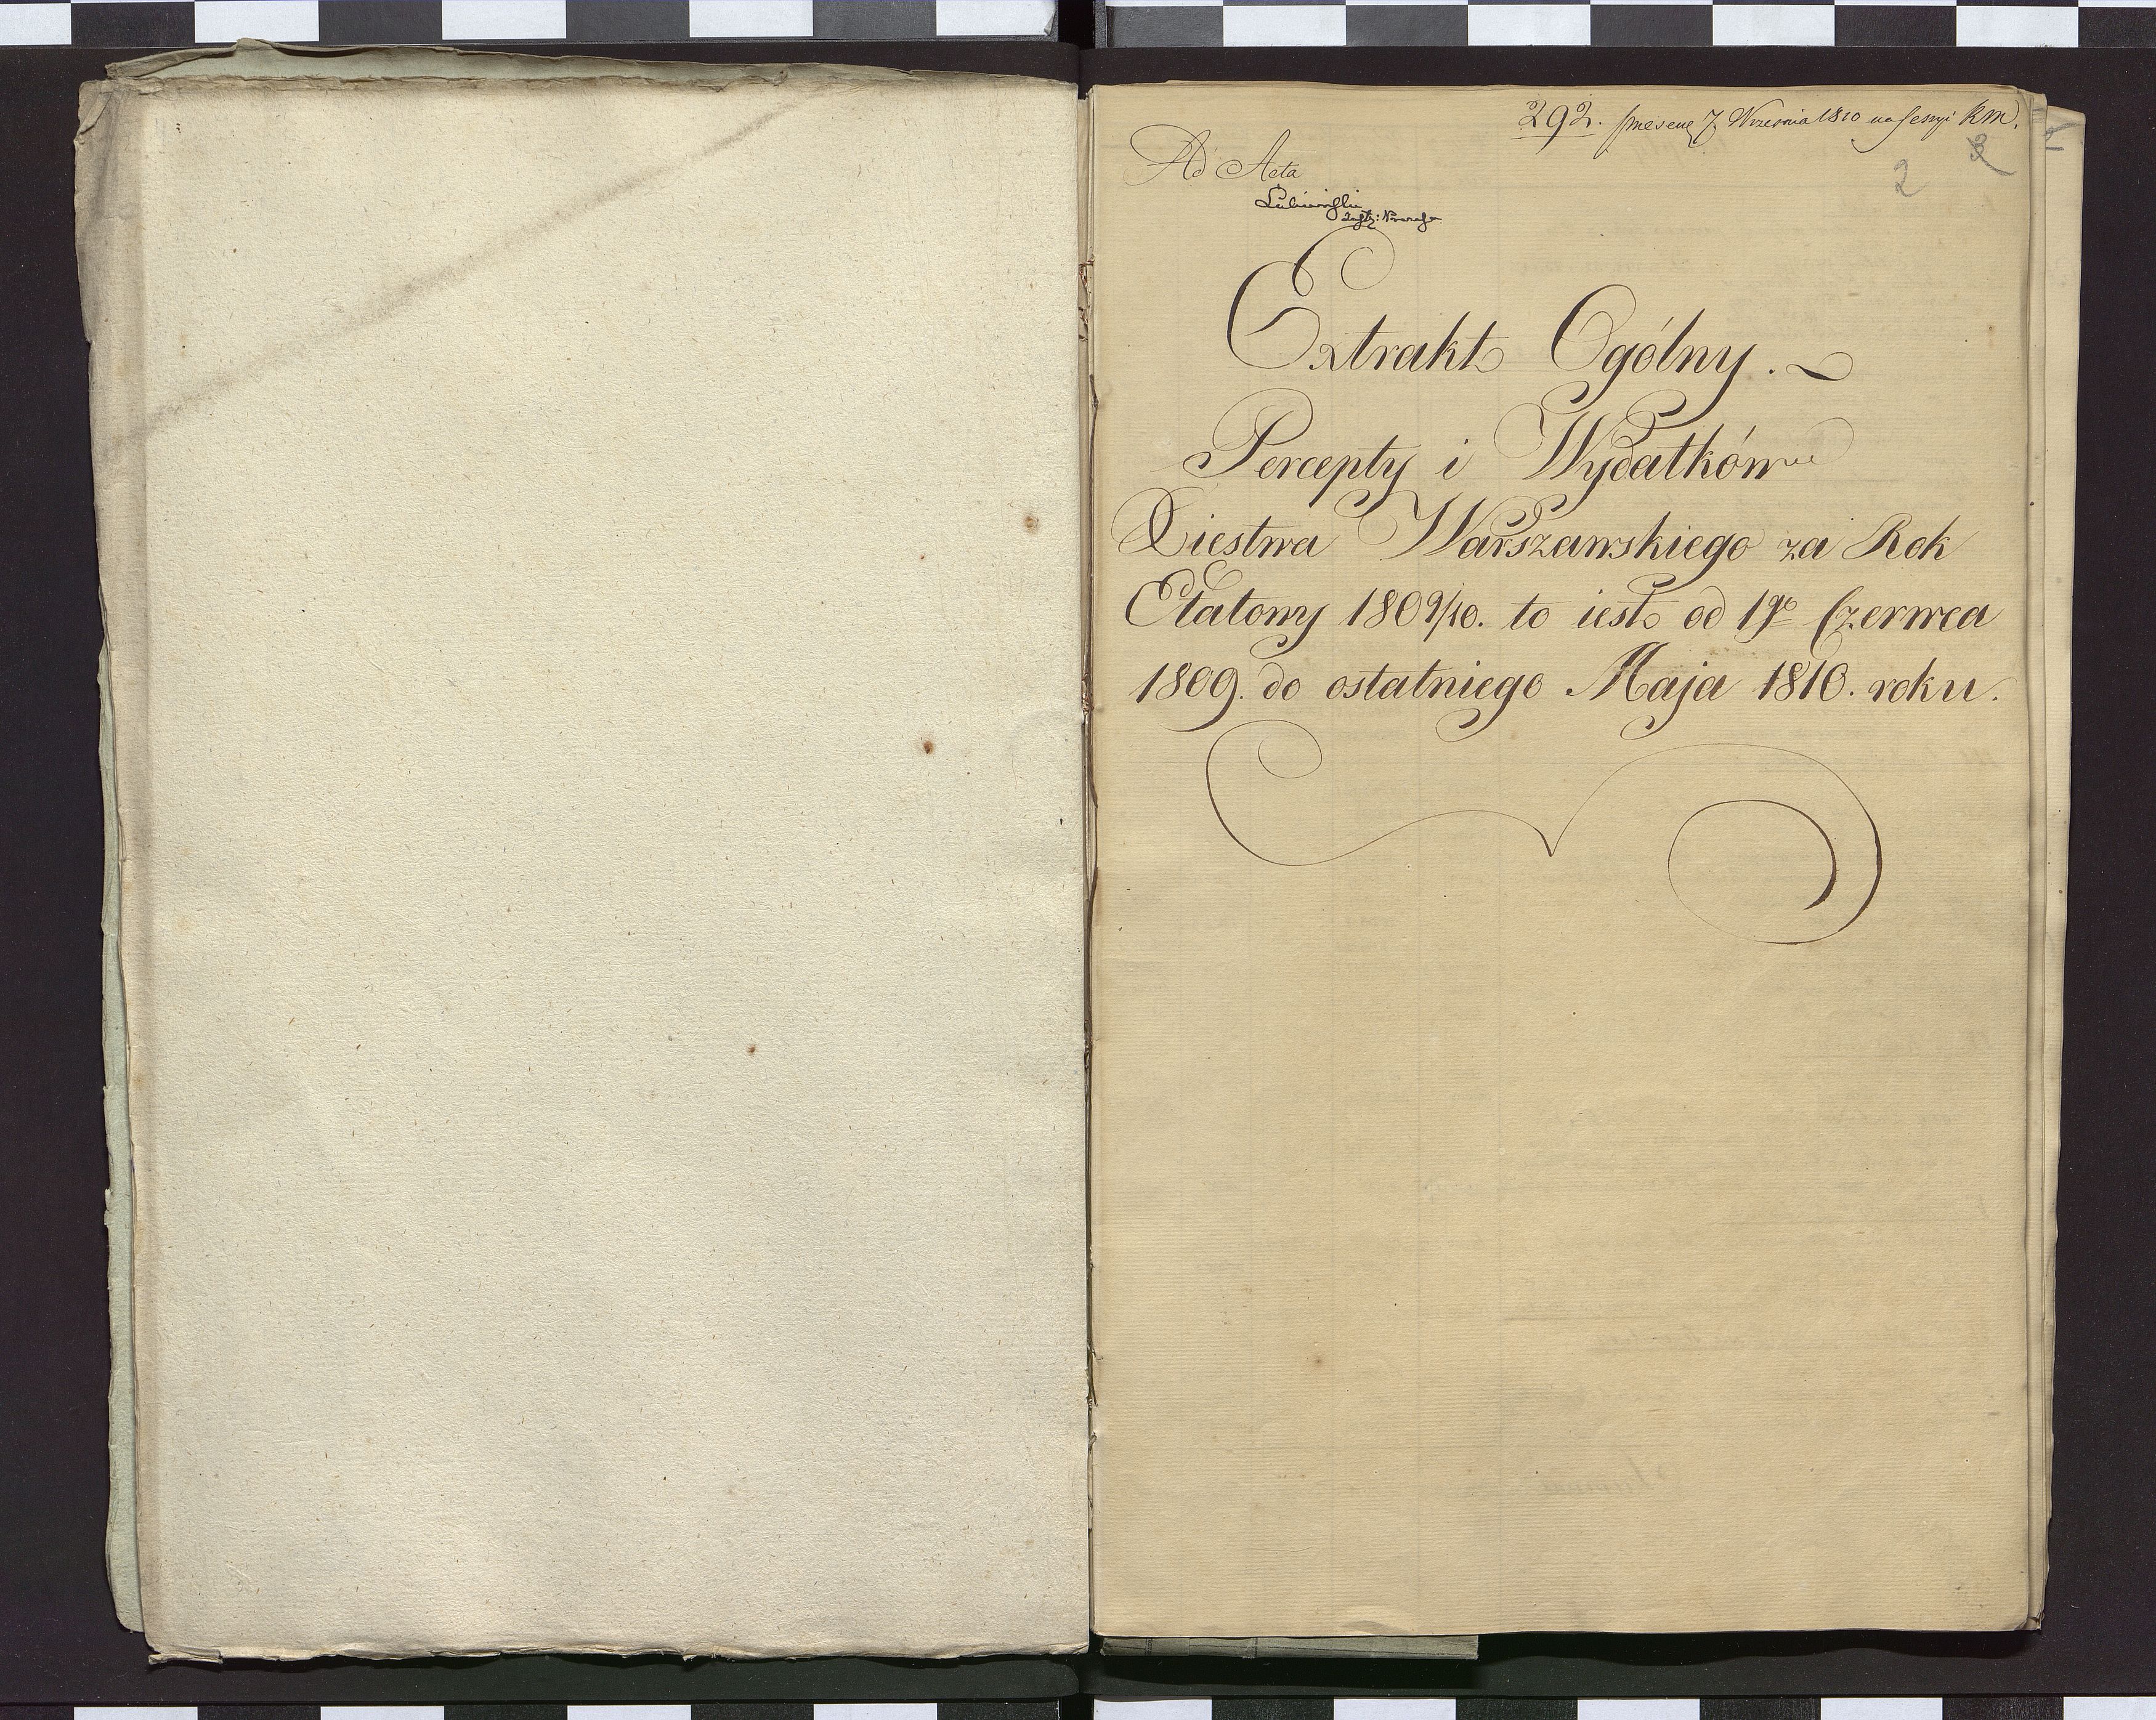 292. 7. Września 1810 na Sessyi RM.
2
Ad Acta
Extrakt Ogólny.
Percepty i Wydatków
Xiestwa Warszawskiego za Rok
Etatowy 1809/10. to iest od 1go Czerwca
1809. do ostatniego Maja 1810. roku.